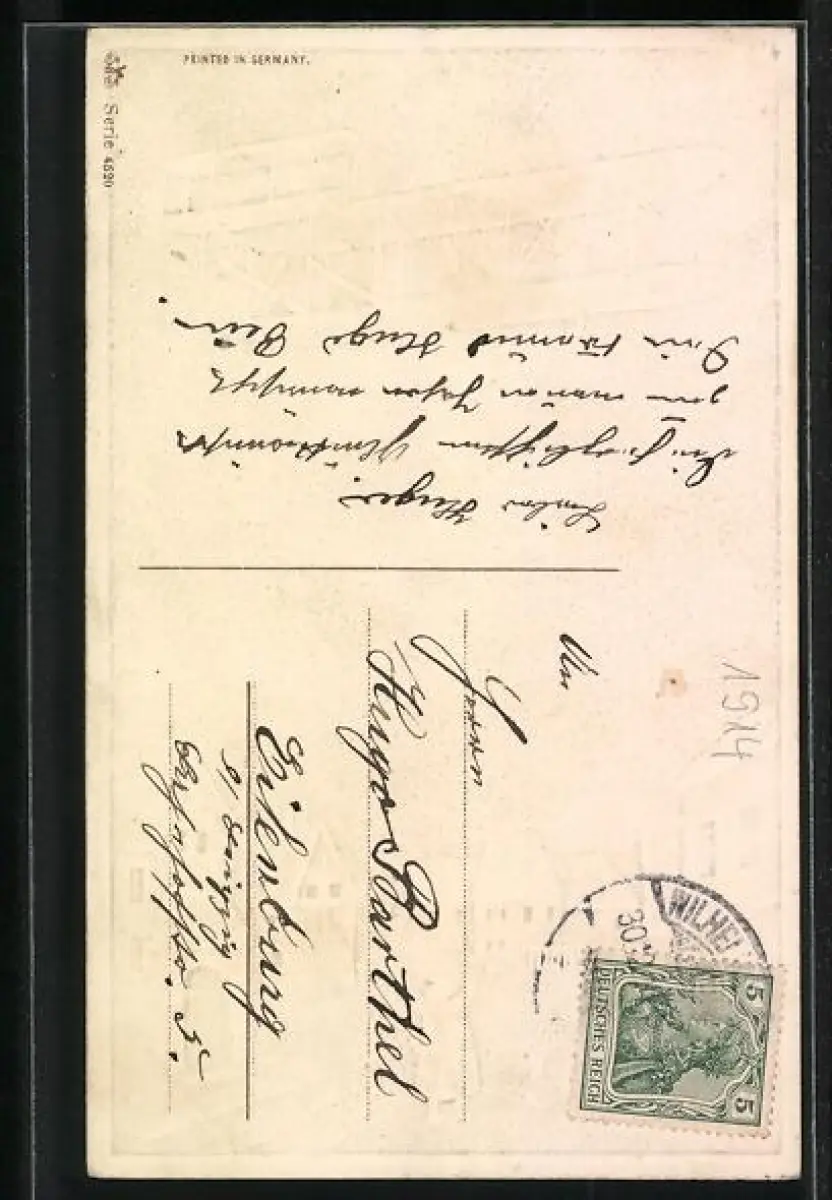 PRINTED IN GERMANY.
Serie 4690
Lieber Hugo!
Die herzlichsten Glückwünsche
zum neuen Jahre wünscht
Dein Freund Hugo
1914
An
Herrn
Hugo Barthel
Eilenburg
b/ Leipzig
5.
WILHEL
30.
5 DEUTSCHES REICH 5